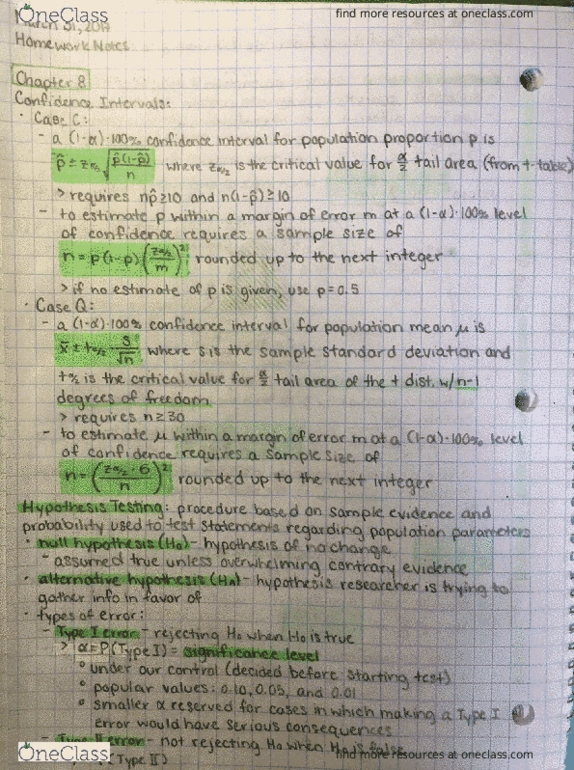 OneClass
find more resources at oneclass.com
March 31, 2017
Homework Notes
Chapter 8
Confidence Intervals:
· Case C:
- a (1-α)·100% confidence interval for population proportion p is
p̂ ± z_{α/2} √(p̂(1-p̂)/n) where z_{α/2} is the critical value for α/2 tail area (from t-table)
> requires np̂≥10 and n(1-p̂)≥10
- to estimate p within a margin of error m at a (1-α)·100% level
of confidence requires a sample size of
n = p(1-p) (z_{α/2}/m)² rounded up to the next integer
> if no estimate of p is given, use p=0.5
· Case Q:
- a (1-α)·100% confidence interval for population mean μ is
x̄ ± t_{α/2} · s/√n where s is the sample standard deviation and
t_{α/2} is the critical value for α/2 tail area of the t dist. w/ n-1
degrees of freedom
> requires n≥30
- to estimate μ within a margin of error m at a (1-α)·100% level
of confidence requires a sample size of
n = (z_{α/2}·σ/n)² rounded up to the next integer
Hypothesis Testing: procedure based on sample evidence and
probability used to test statements regarding population parameters
· null hypothesis (H₀) - hypothesis of no change
- assumed true unless overwhelming contrary evidence
· alternative hypothesis (Hₐ) - hypothesis researcher is trying to
gather info in favor of
· types of error:
- Type I error - rejecting H₀ when H₀ is true
> α = P(Type I) = significance level
° under our control (decided before starting test)
° popular values: 0.10, 0.05, and 0.01
° smaller α reserved for cases in which making a Type I
error would have serious consequences
- Type II error - not rejecting H₀ when H₀ is false
(Type II)
OneClass
find more resources at oneclass.com